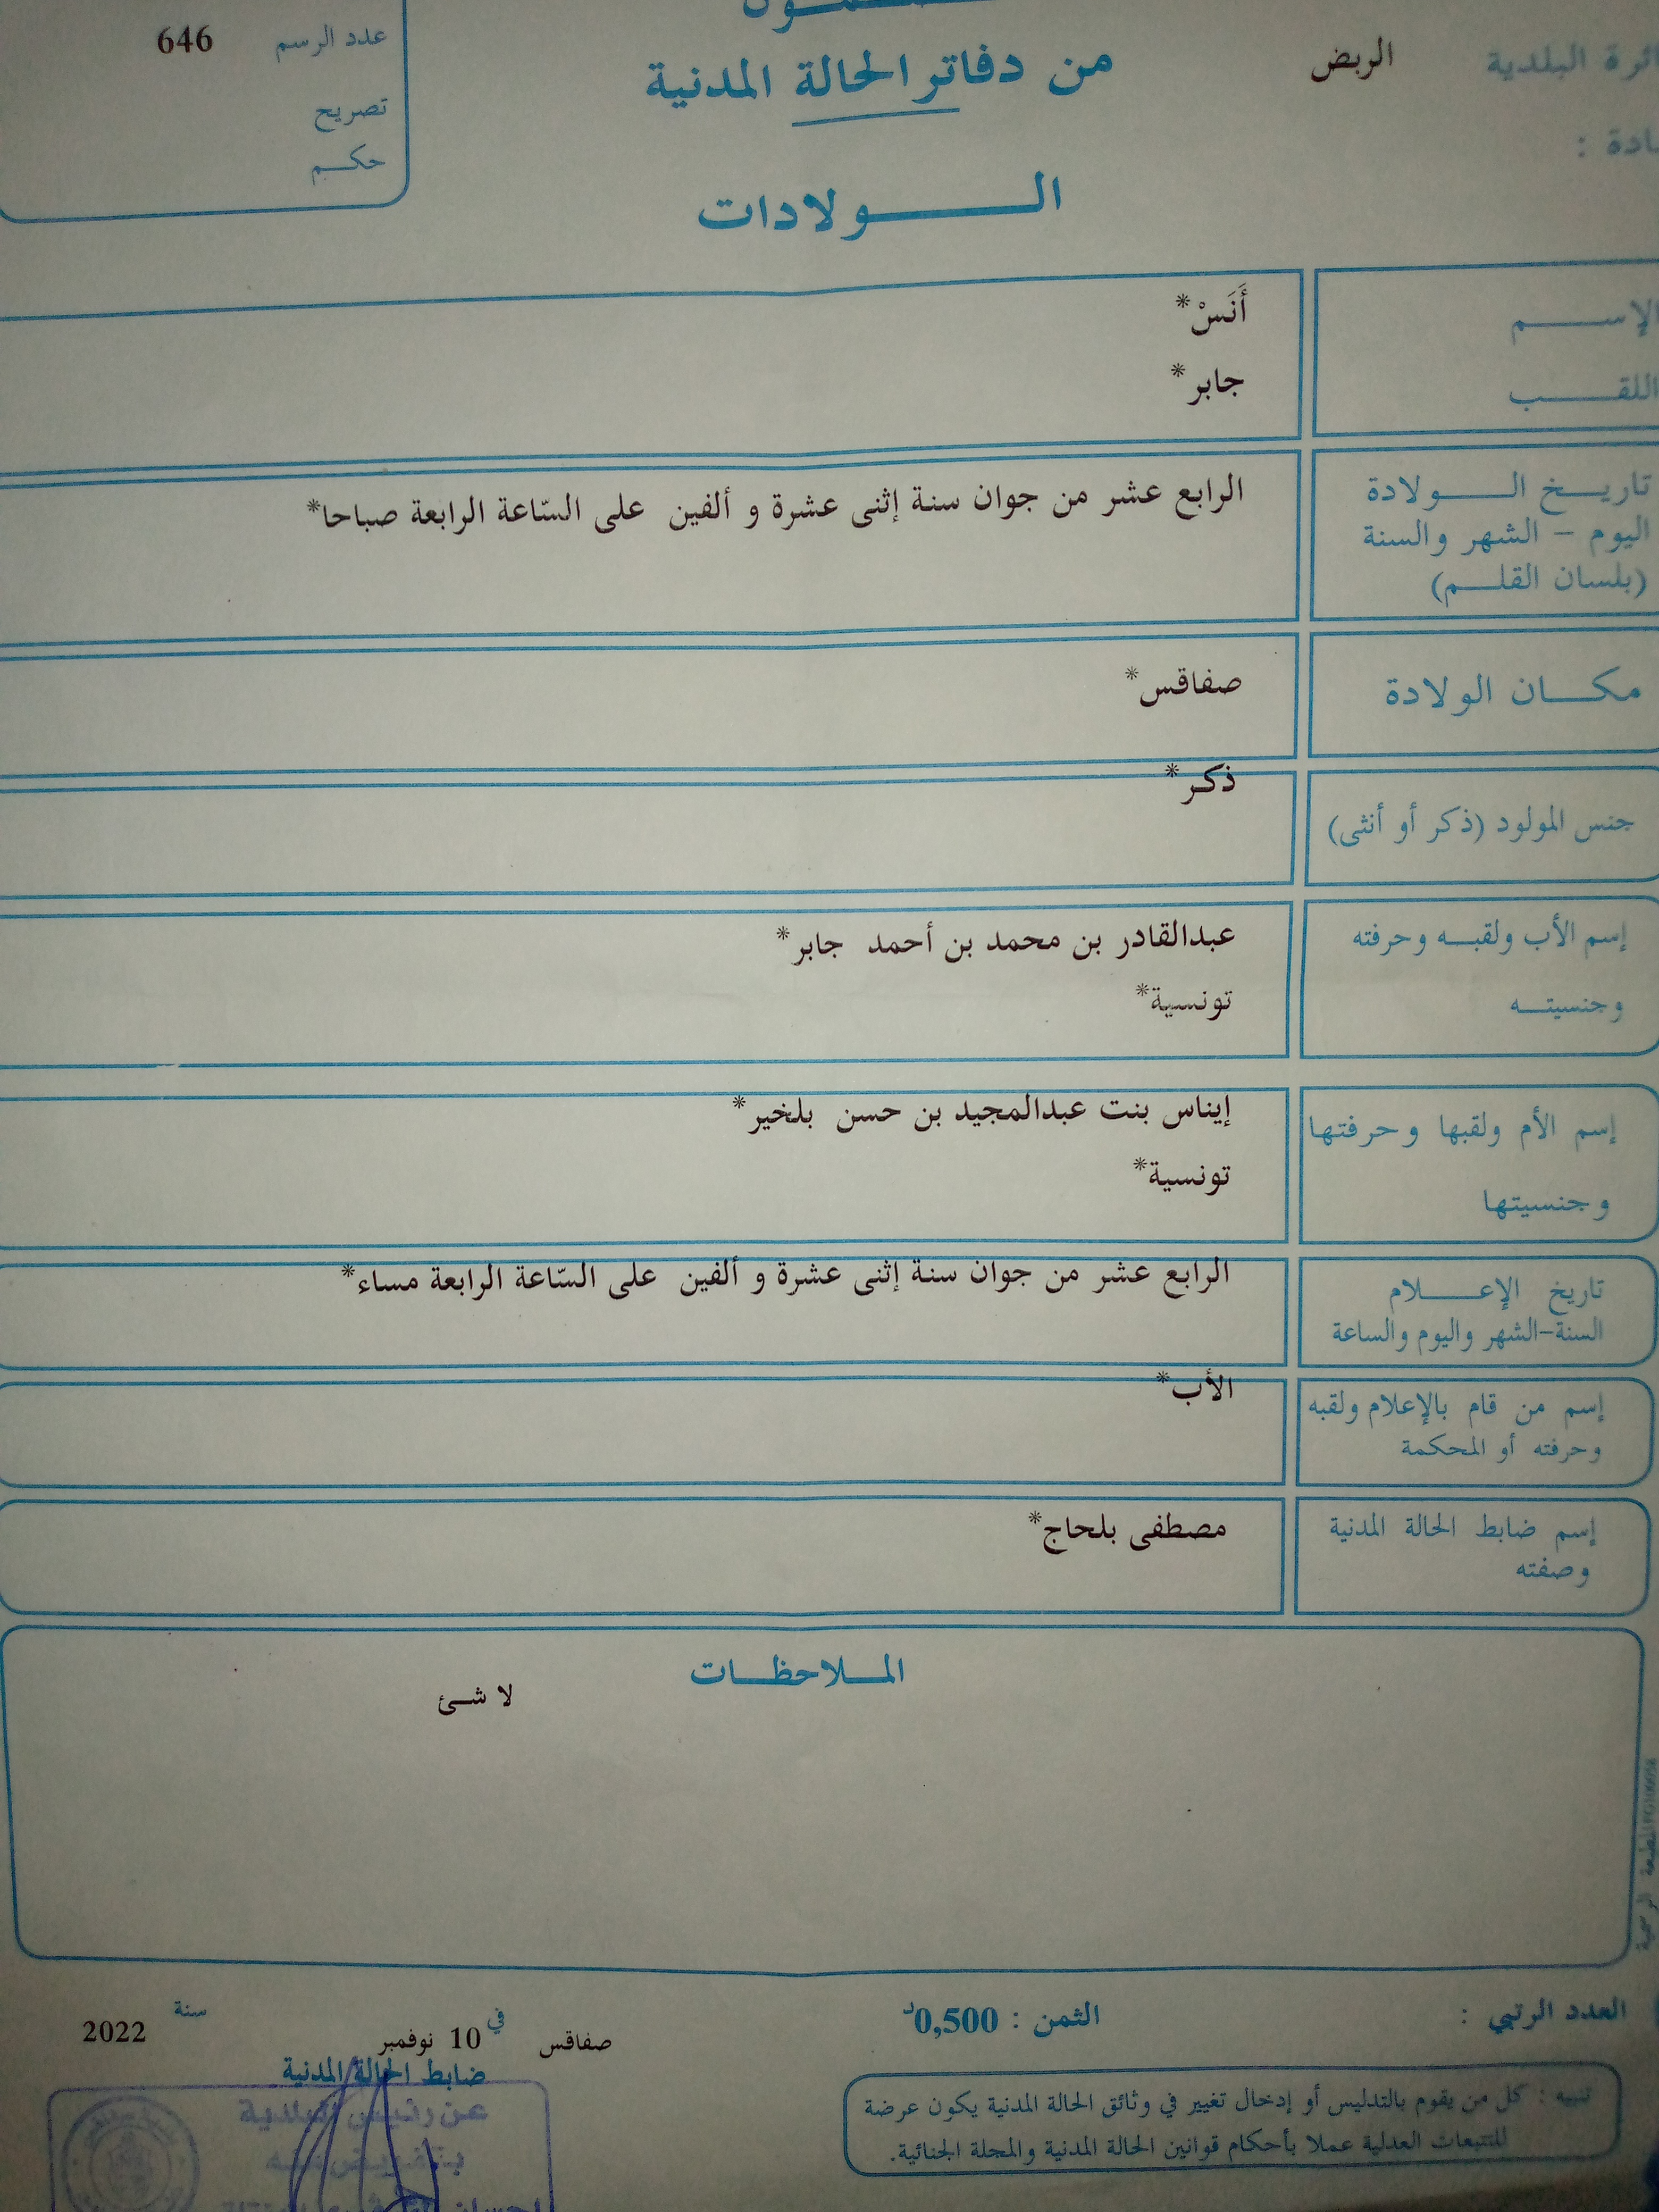 من دفاتر الحالة المدنية
الـولادات
البلدية الربض
عدد الرسم 646
تصريح
حكم
الإسم أَنَسْ*
اللقب جابر*
تاريخ الولادة
اليوم - الشهر والسنة
(بلسان القلم)
الرابع عشر من جوان سنة إثنى عشرة و ألفين على السّاعة الرابعة صباحا*
مكان الولادة صفاقس*
جنس المولود (ذكر أو أنثى) ذكر*
إسم الأب ولقبه وحرفته عبدالقادر بن محمد بن أحمد جابر*
وجنسيته تونسية*
إسم الأم ولقبها وحرفتها إيناس بنت عبدالمجيد بن حسن بلخير*
وجنسيتها تونسية*
تاريخ الإعلام
السنة-الشهر واليوم والساعة
الرابع عشر من جوان سنة إثنى عشرة و ألفين على السّاعة الرابعة مساء*
إسم من قام بالإعلام ولقبه
وحرفته أو المحكمة
الأب*
إسم ضابط الحالة المدنية
وصفته
مصطفى بلحاج*
الملاحظات
لا شئ
العدد الرتبي :
الثمن : 0,500د
صفاقس في 10 نوفمبر سنة 2022
ضابط الحالة المدنية
عن رئيس البلدية
تنبيه : كل من يقوم بالتدليس أو إدخال تغيير في وثائق الحالة المدنية يكون عرضة
للتتبعات العدلية عملا بأحكام قوانين الحالة المدنية والمجلة الجنائية.